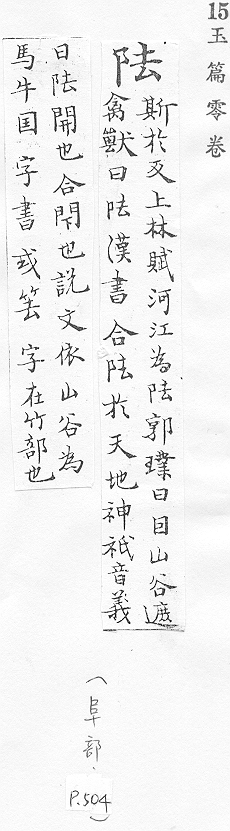 15 玉篇零卷
阹
斯於反上林賦河江為阹郭璞曰因山谷遮
禽獸曰阹漢書合阹於天地神祇音義
曰阹開也合閇也説文依山谷為
馬牛囯字書或筶字在竹部也
(阜部.
P.504)